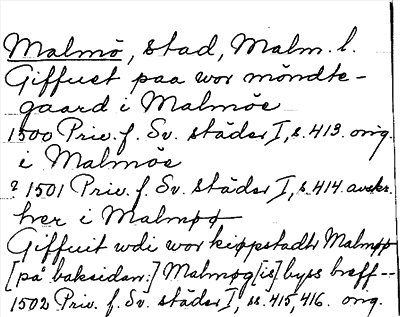 Malmö, stad, Malm. l.
Giffuet paa wor möndte-
gaard i Malmöe
1500 Priv. f. Sv. städer I, s. 413. orig.
i Malmöe
? 1501 Priv. f. Sv. städer I, s. 414. avskr.
her i Malmøø
Giffuit wdi wor kiøpstadh Malmøø
[på baksidan:] Malmøg[is] byss breff --
1502 Priv. f. Sv. städer I, ss. 415, 416. orig.